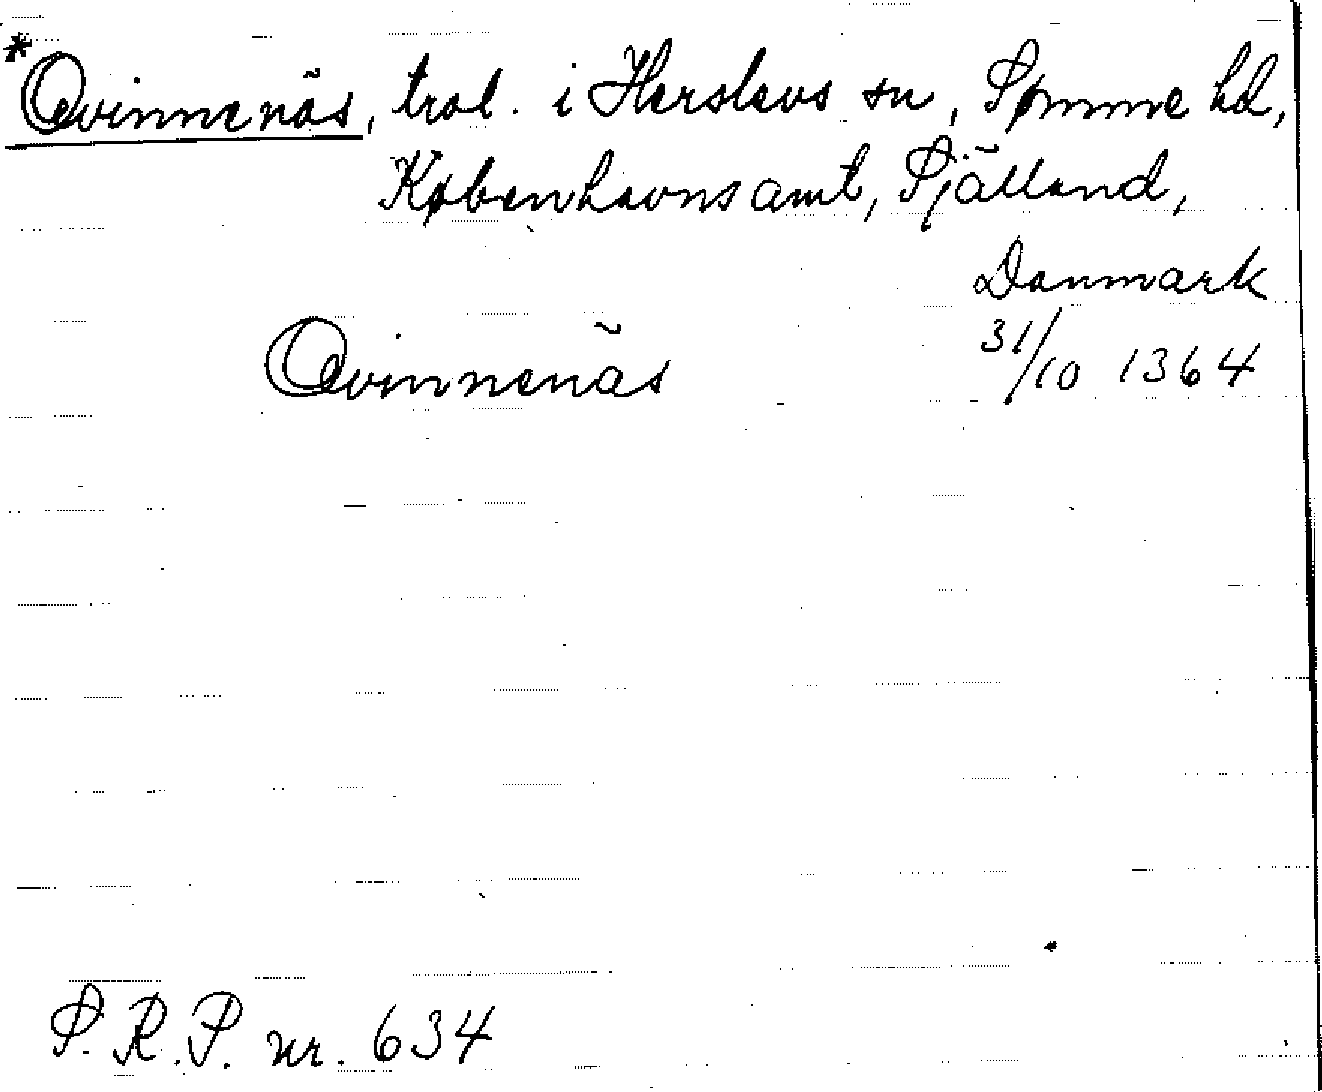 *Qvinnenäs, trol. i Herslevs sn, Sømme hd,
Københavns amt, Själland,
Danmark
Qvinnenäs 31/10 1364
S.R.P. nr. 634